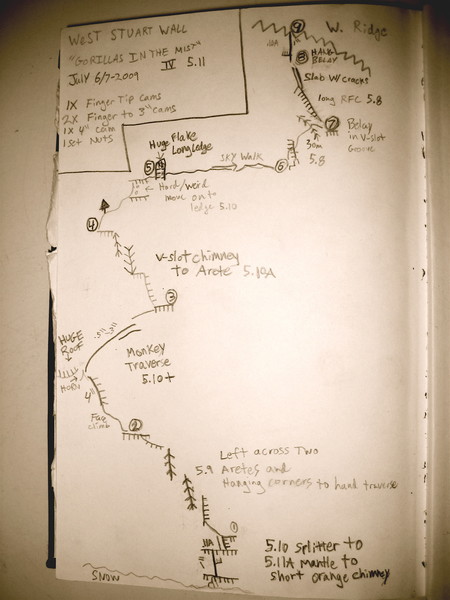 WEST STUART WALL
"GORILLAS IN THE MIST"
IV 5.11
JULY 6/7-2009
1X Finger Tip Cams
2X Finger to 3" cams
1X 4" Cam
1 set Nuts
W. Ridge
9
11A
8 HALF
BELAY
Slab w/ cracks
long RFC 5.8
7
Belay
in V-slot
Groove
30m
5.8
Huge Flake
Long Ledge
5
SKY WALK
6
Hard/weird
move onto
ledge 5.10
4
V-slot chimney
to Arete 5.10A
3
HUGE
ROOF
.5"-3"
Monkey
Traverse
5.10+
4"
Face
climb
2
Left across Two
5.9 Aretes and
Hanging corners to hand traverse
1
11A
5.10 splitter to
5.11A mantle to
short orange chimney
SNOW